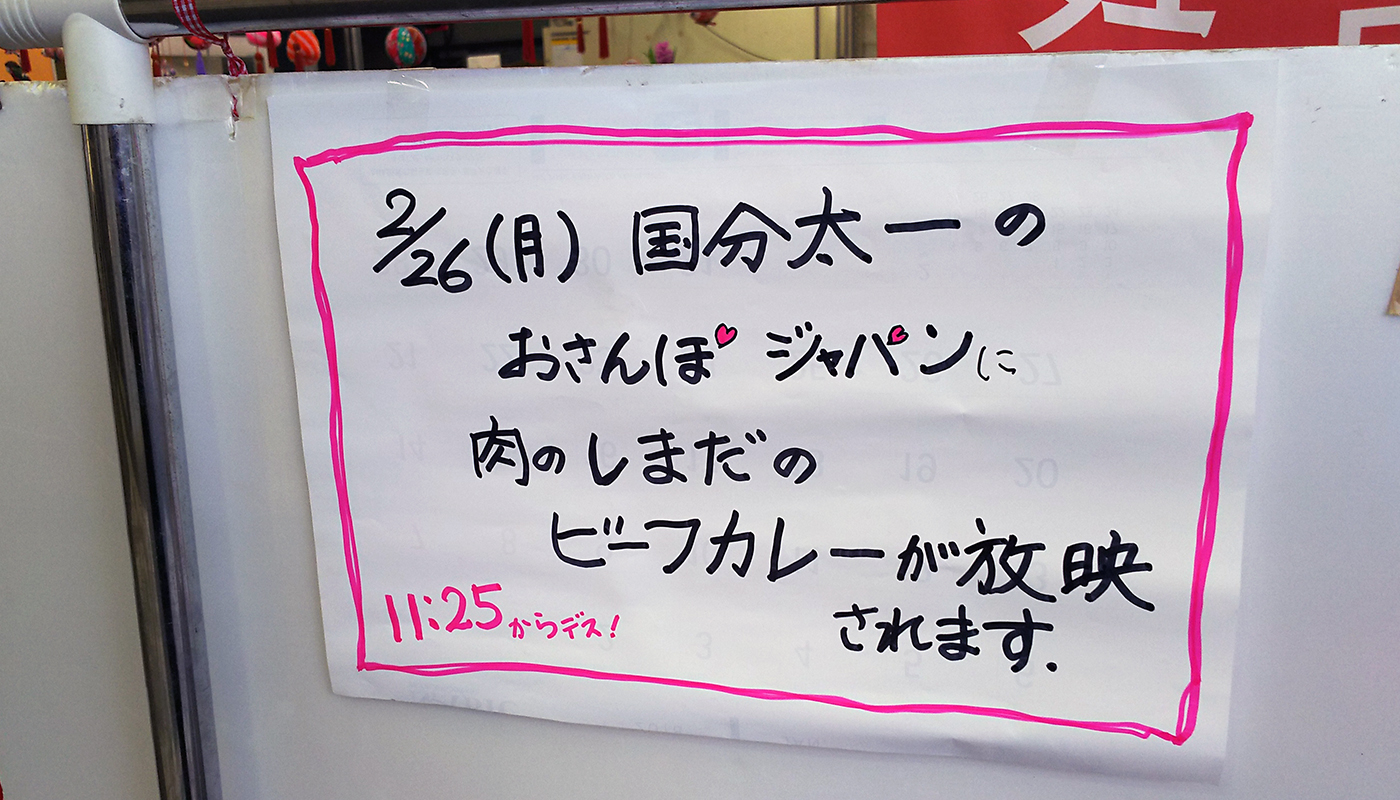 2/26(月) 国分太一の
おさんぽ ジャパンに
肉のしまだの
ビーフカレーが放映
されます.
11:25からデス!